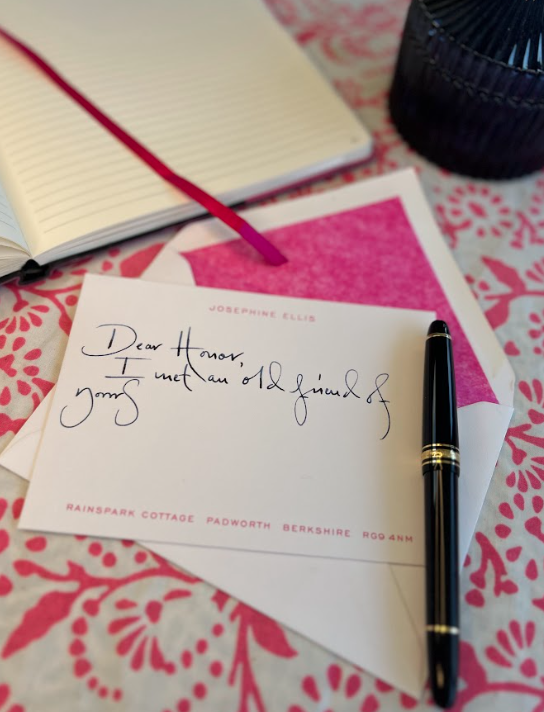 JOSEPHINE ELLIS
Dear Honor,
I met an old friend of
yours
RAINSPARK COTTAGE PADWORTH BERKSHIRE RG9 4NM